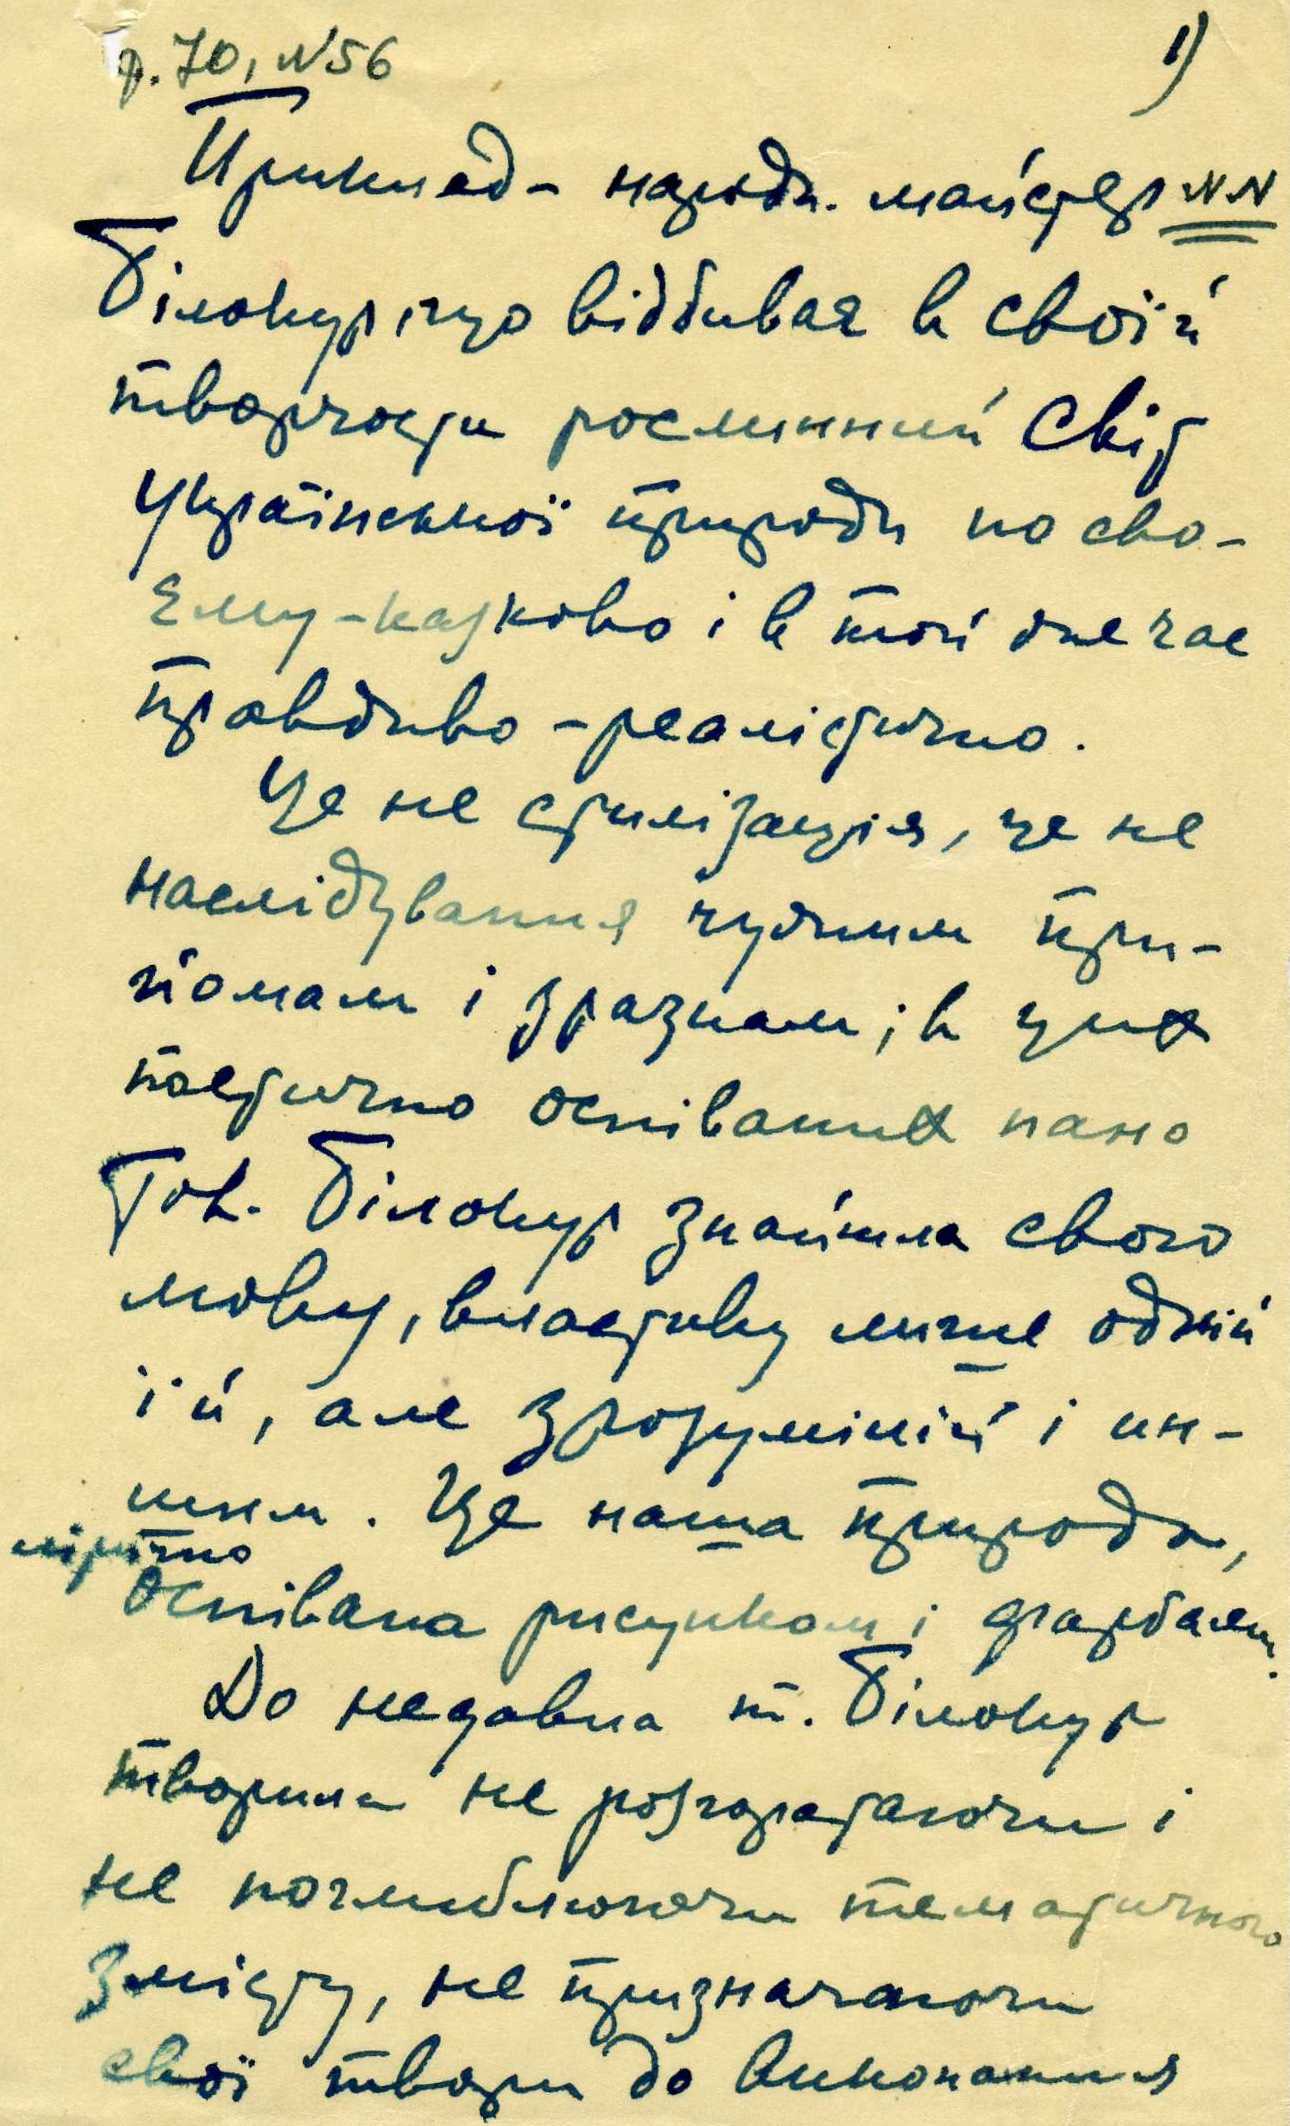 ф. 70, №56
1)
Приклад - народн. майстер NN
Білокур, що відбиває в своїй
творчости рослинний світ
Української природи по сво-
єму - казково і в той же час
правдиво - реалістично.
Це не стилізація, це не
наслідування чужим при-
йомам і зразкам; в цих
поетично оспіваних пано
Тов. Білокур знайшла свою
мову, властиву лише одній
їй, але зрозумілій і ин-
шим. Це наша природа,
лірично
оспівана рисунком і фарбами.
До недавна т. Білокур
творила не розгортаючи і
не поглиблюючи тематичного
змісту, не призначаючи
свої твори до виконання